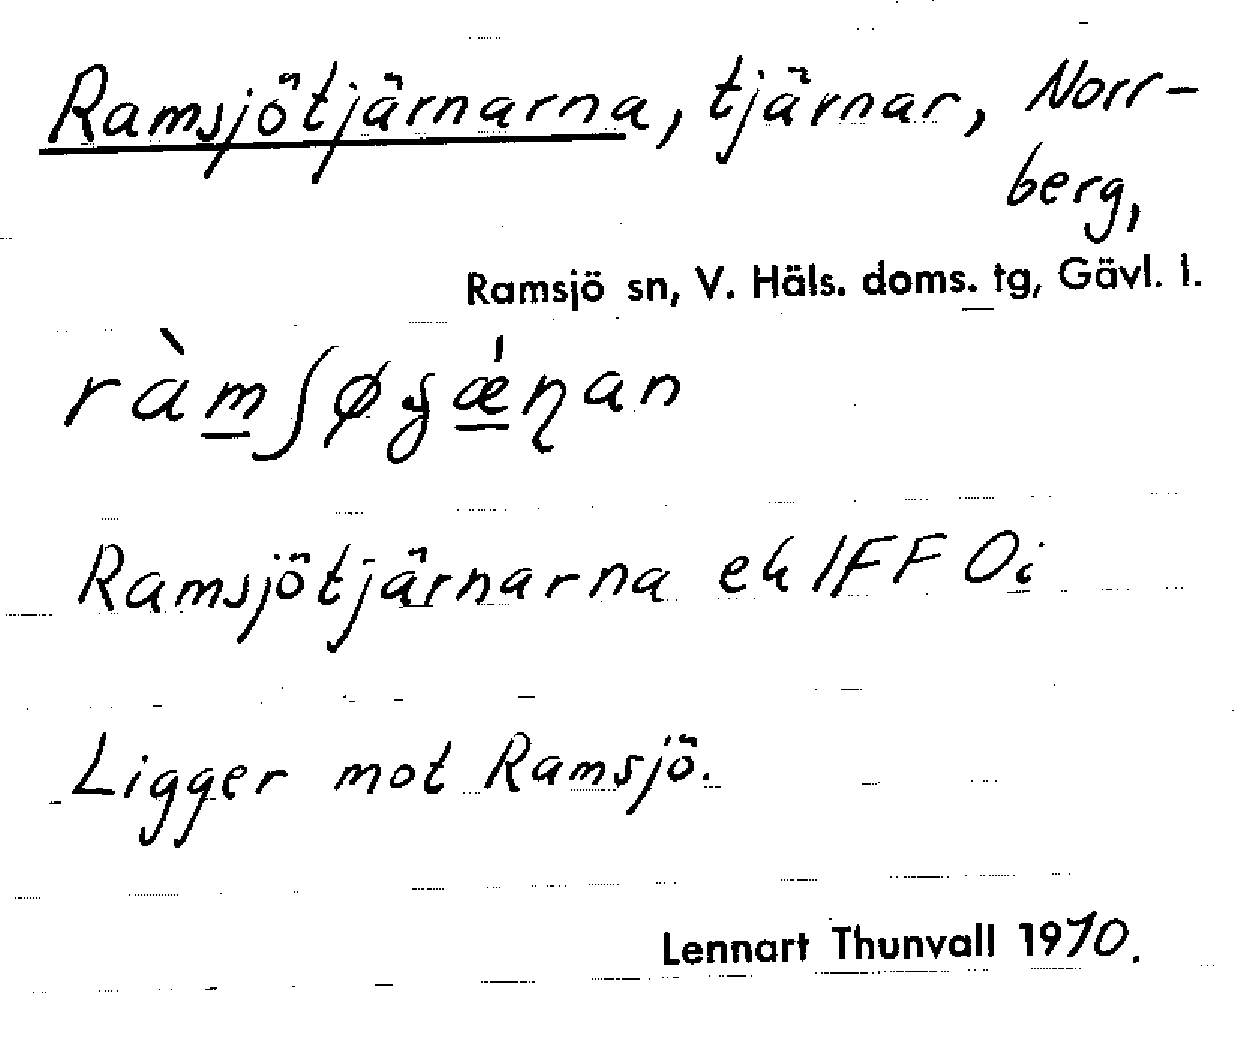 Ramsjötjärnarna, tjärnar, Norr-
berg,
Ramsjö sn, V. Häls. doms. tg, Gävl. l.
Ramsjötjärnarna ek 1FF 0i
Ligger mot Ramsjö.
Lennart Thunvall 1970.